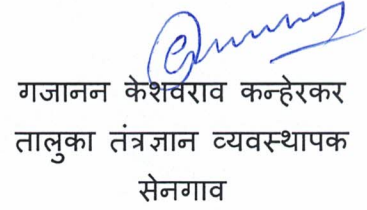 गजानन केशवराव कन्हेरकर
तालुका तंत्रज्ञान व्यवस्थापक
सेनगाव